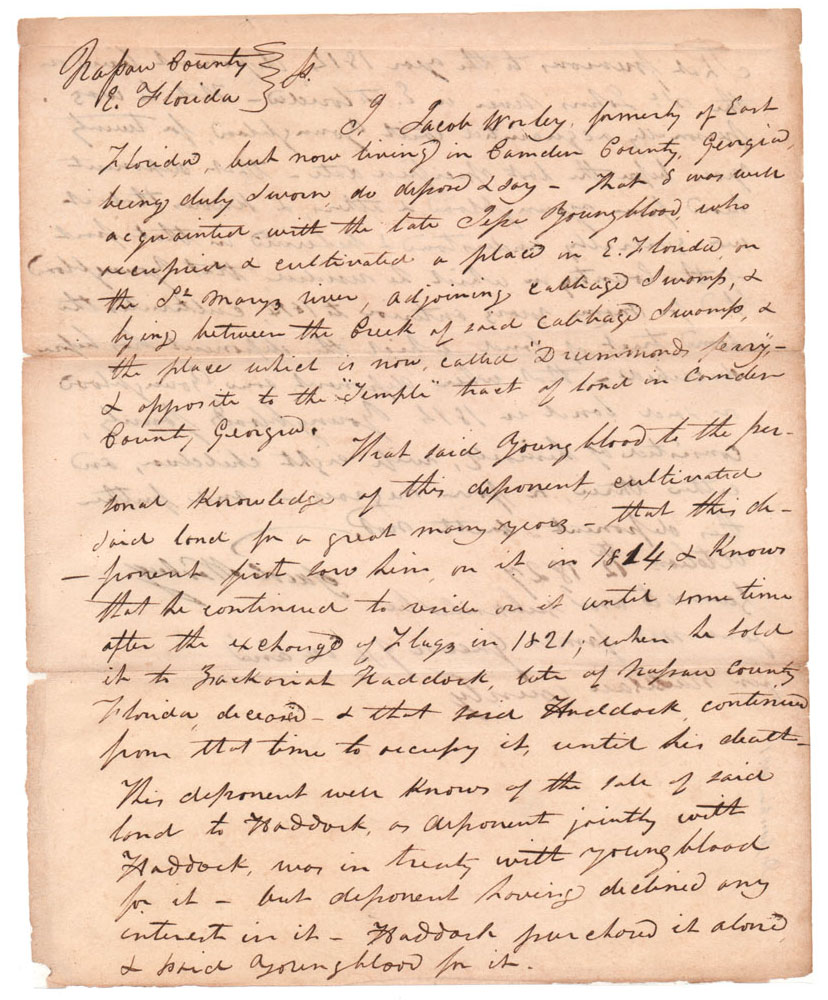 Nassau County } ss.
E. Florida }
I Jacob Worley, formerly of East
Florida, but now living in Camden County, Georgia,
being duly sworn, do depose & say – That I was well
acquainted with the late Jesse Youngblood, who
occupied & cultivated a place in E. Florida, on
the St. Marys river, adjoining Cabbage Swamp, &
lying between the Creek of said Cabbage Swamp, &
the place which is now, called "Drummonds ferry" –
& opposite to the "Temple" tract of land in Camden
County, Georgia.
That said Youngblood to the per-
sonal knowledge of this deponent cultivated
said land for a great many years – that this de-
– ponent first saw him, on it in 1814 & knows
that he continued to reside on it until some time
after the exchange of Flags in 1821; when he sold
it to Zachariah Haddock, late of Nassau County
Florida, deceased – & that said Haddock, continued
from that time to occupy it, until his death –
This deponent well knows of the sale of said
land to Haddock, as deponent jointly with
Haddock, was in treaty with Youngblood
for it – but deponent having declined any
interest in it – Haddock purchased it alone,
& paid Youngblood for it.